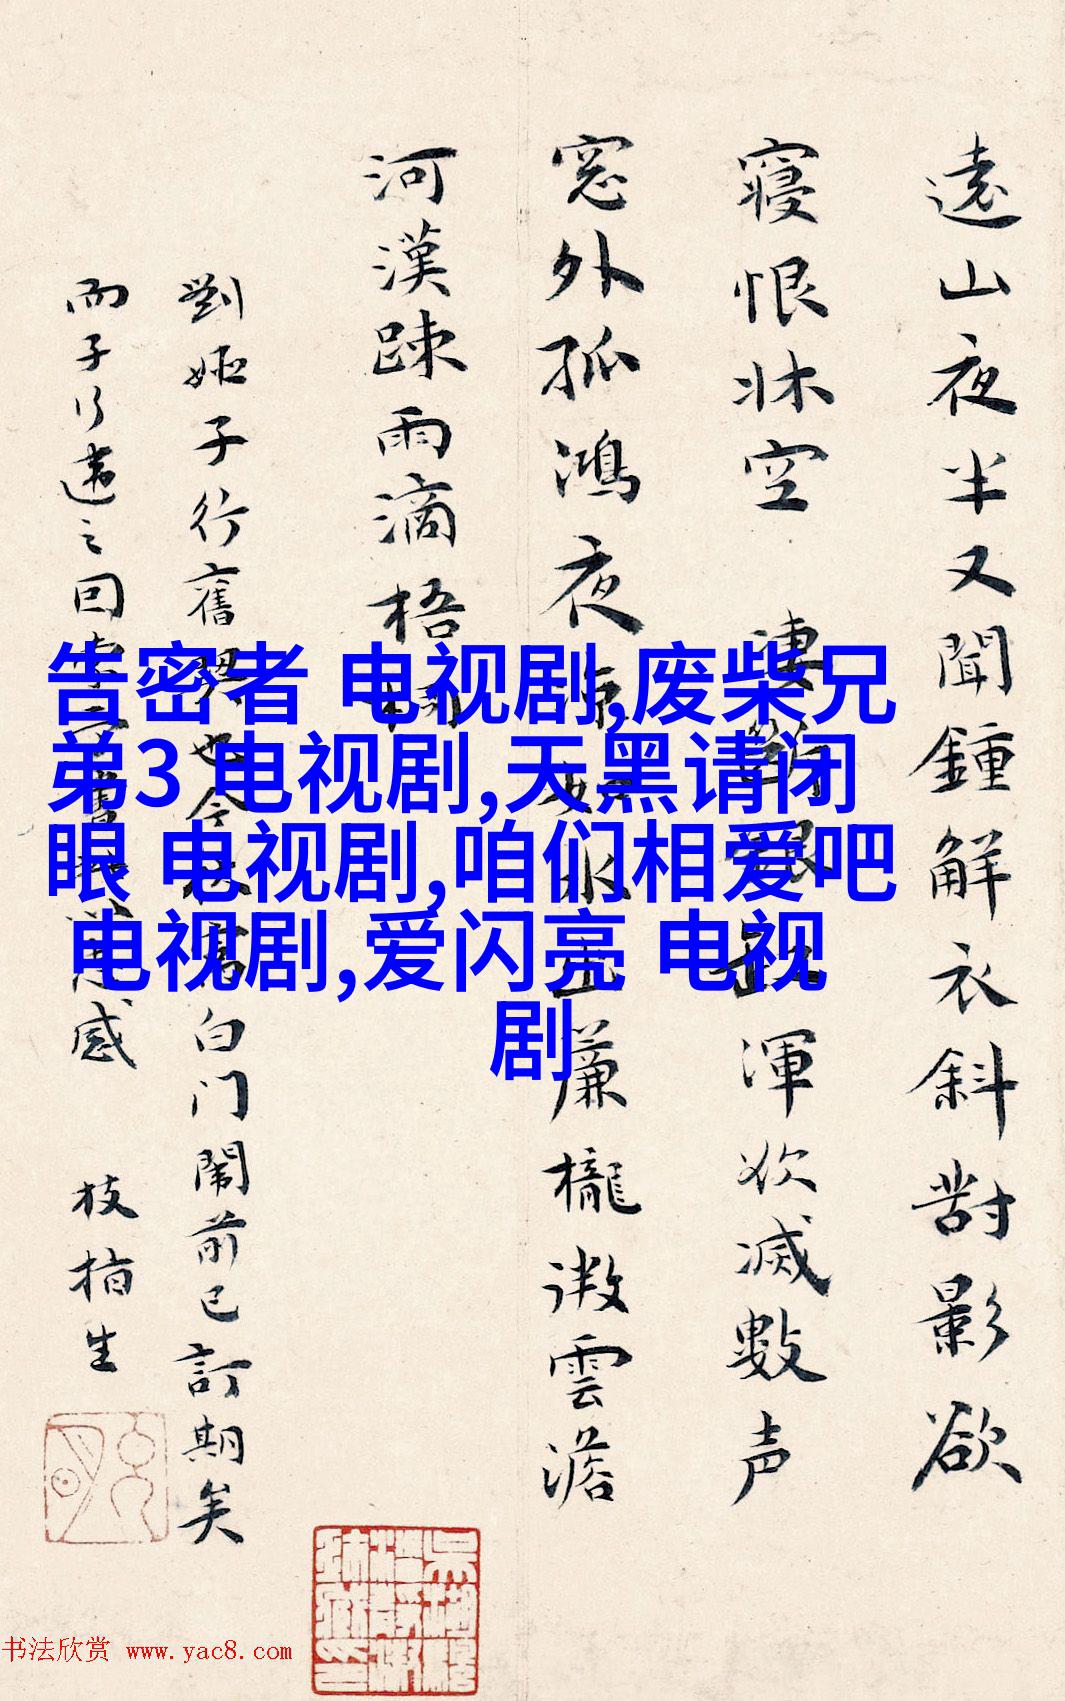 遠山夜半又聞鍾解衣斜對影欲
寢恨牀空 淒斷銀缸渾欲滅數声
窓外孤鴻夜涼如水上簾櫳微雲澹
河漢踈雨滴梧桐
劉姬子行舊 也今 白门鬧前已訂期矣
而子行遠之回 感
枝指生
告密者 电视剧,废柴兄
弟3 电视剧,天黑请闭
眼 电视剧,咱们相爱吧
电视剧,爱闪亮 电视
剧
书法欣赏 www.yac8.com